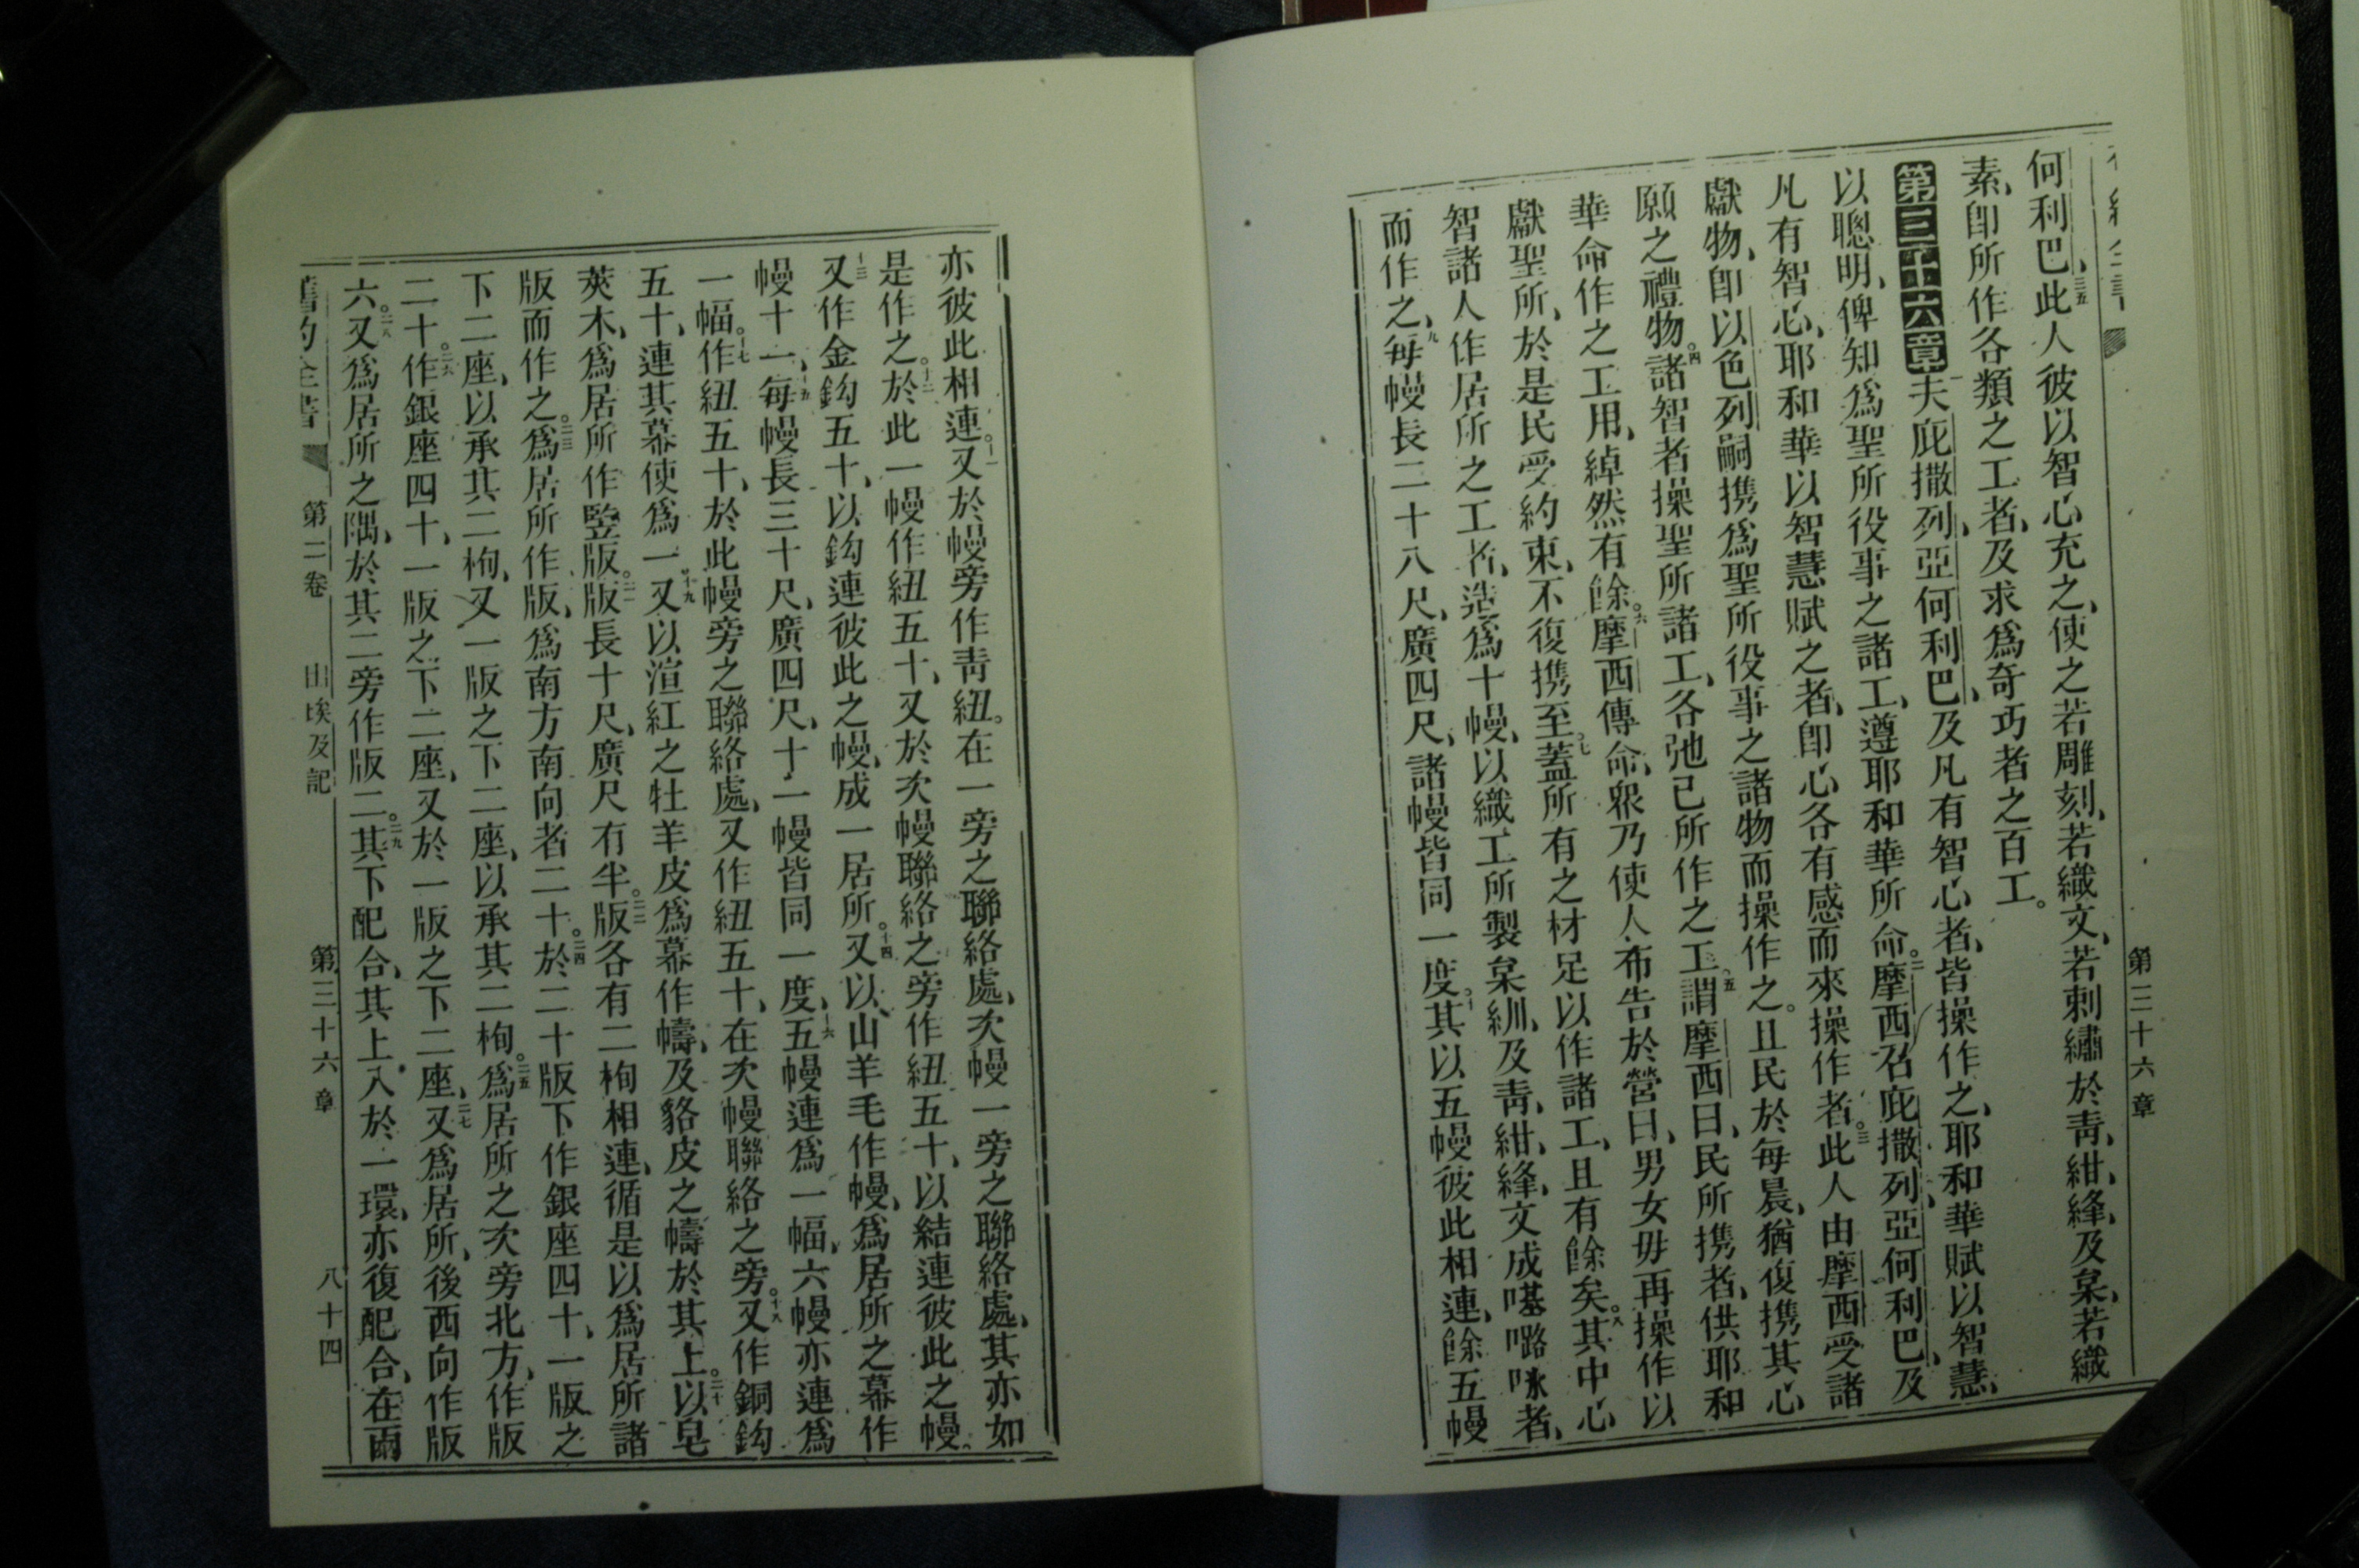 第三十六章
何利巴、三五此人彼以智心充之、使之若雕刻、若織文、若刺繡於靑、紺、絳、及枲、若織
素、卽所作各類之工者、及求爲奇巧者之百工。
第三十六章一夫庇撒列、亞何利巴、及凡有智心者、皆操作之、耶和華賦以智慧、
以聰明、俾知爲聖所役事之諸工、遵耶和華所命。二摩西召庇撒列、亞何利巴、及
凡有智心、耶和華以智慧賦之者、卽心各有感而來操作者。三此人由摩西受諸
獻物、卽以色列嗣携爲聖所役事之諸物而操作之。且民於每晨、猶復携其心
願之禮物。四諸智者操聖所諸工、各弛己所作之工、五謂摩西曰、民所携者、供耶和
華命作之工用、綽然有餘。六摩西傳命、衆乃使人布告於營曰、男女毋再操作以
獻聖所、於是民受約束、不復携至。七蓋所有之材足以作諸工、且有餘矣。八其中心
智諸人作居所之工者、造爲十幔、以織工所製枲紃、及靑、紺、絳、文成𠼻㖍咏者、
而作之、九每幔長二十八尺、廣四尺、諸幔皆同一度。十其以五幔彼此相連、餘五幔
亦彼此相連。十一又於幔旁作靑紐。在一旁之聯絡處、次幔一旁之聯絡處、其亦如
是作之。十二於此一幔作紐五十、又於次幔聯絡之旁作紐五十、以結連彼此之幔。
十三又作金鈎五十、以鈎連彼此之幔、成一居所。十四又以山羊毛作幔、爲居所之幕作
幔十一、十五每幔長三十尺、廣四尺、十一幔皆同一度、十六五幔連爲一幅、六幔亦連爲
一幅。十七作紐五十、於此幔旁之聯絡處、又作紐五十、在次幔聯絡之旁。十八又作銅鈎
五十、連其幕使爲一。十九又以渲紅之牡羊皮爲幕作幬、及貉皮之幬於其上。二十以皂
莢木、爲居所作竪版。二一版長十尺、廣尺有半。二二版各有二枸相連、循是以爲居所諸
版而作之。二三爲居所作版、爲南方南向者二十。二四於二十版下作銀座四十、一版之
下二座、以承其二枸、又一版之下二座、以承其二枸。二五爲居所之次旁北方、作版
二十。二六作銀座四十、一版之下二座、又於一版之下二座、二七又爲居所、後西向作版
六。二八又爲居所之隅、於其二旁作版二。二九其下配合、其上入於一環、亦復配合、在兩
舊約全書 第二卷 出埃及記 第三十六章 八十四